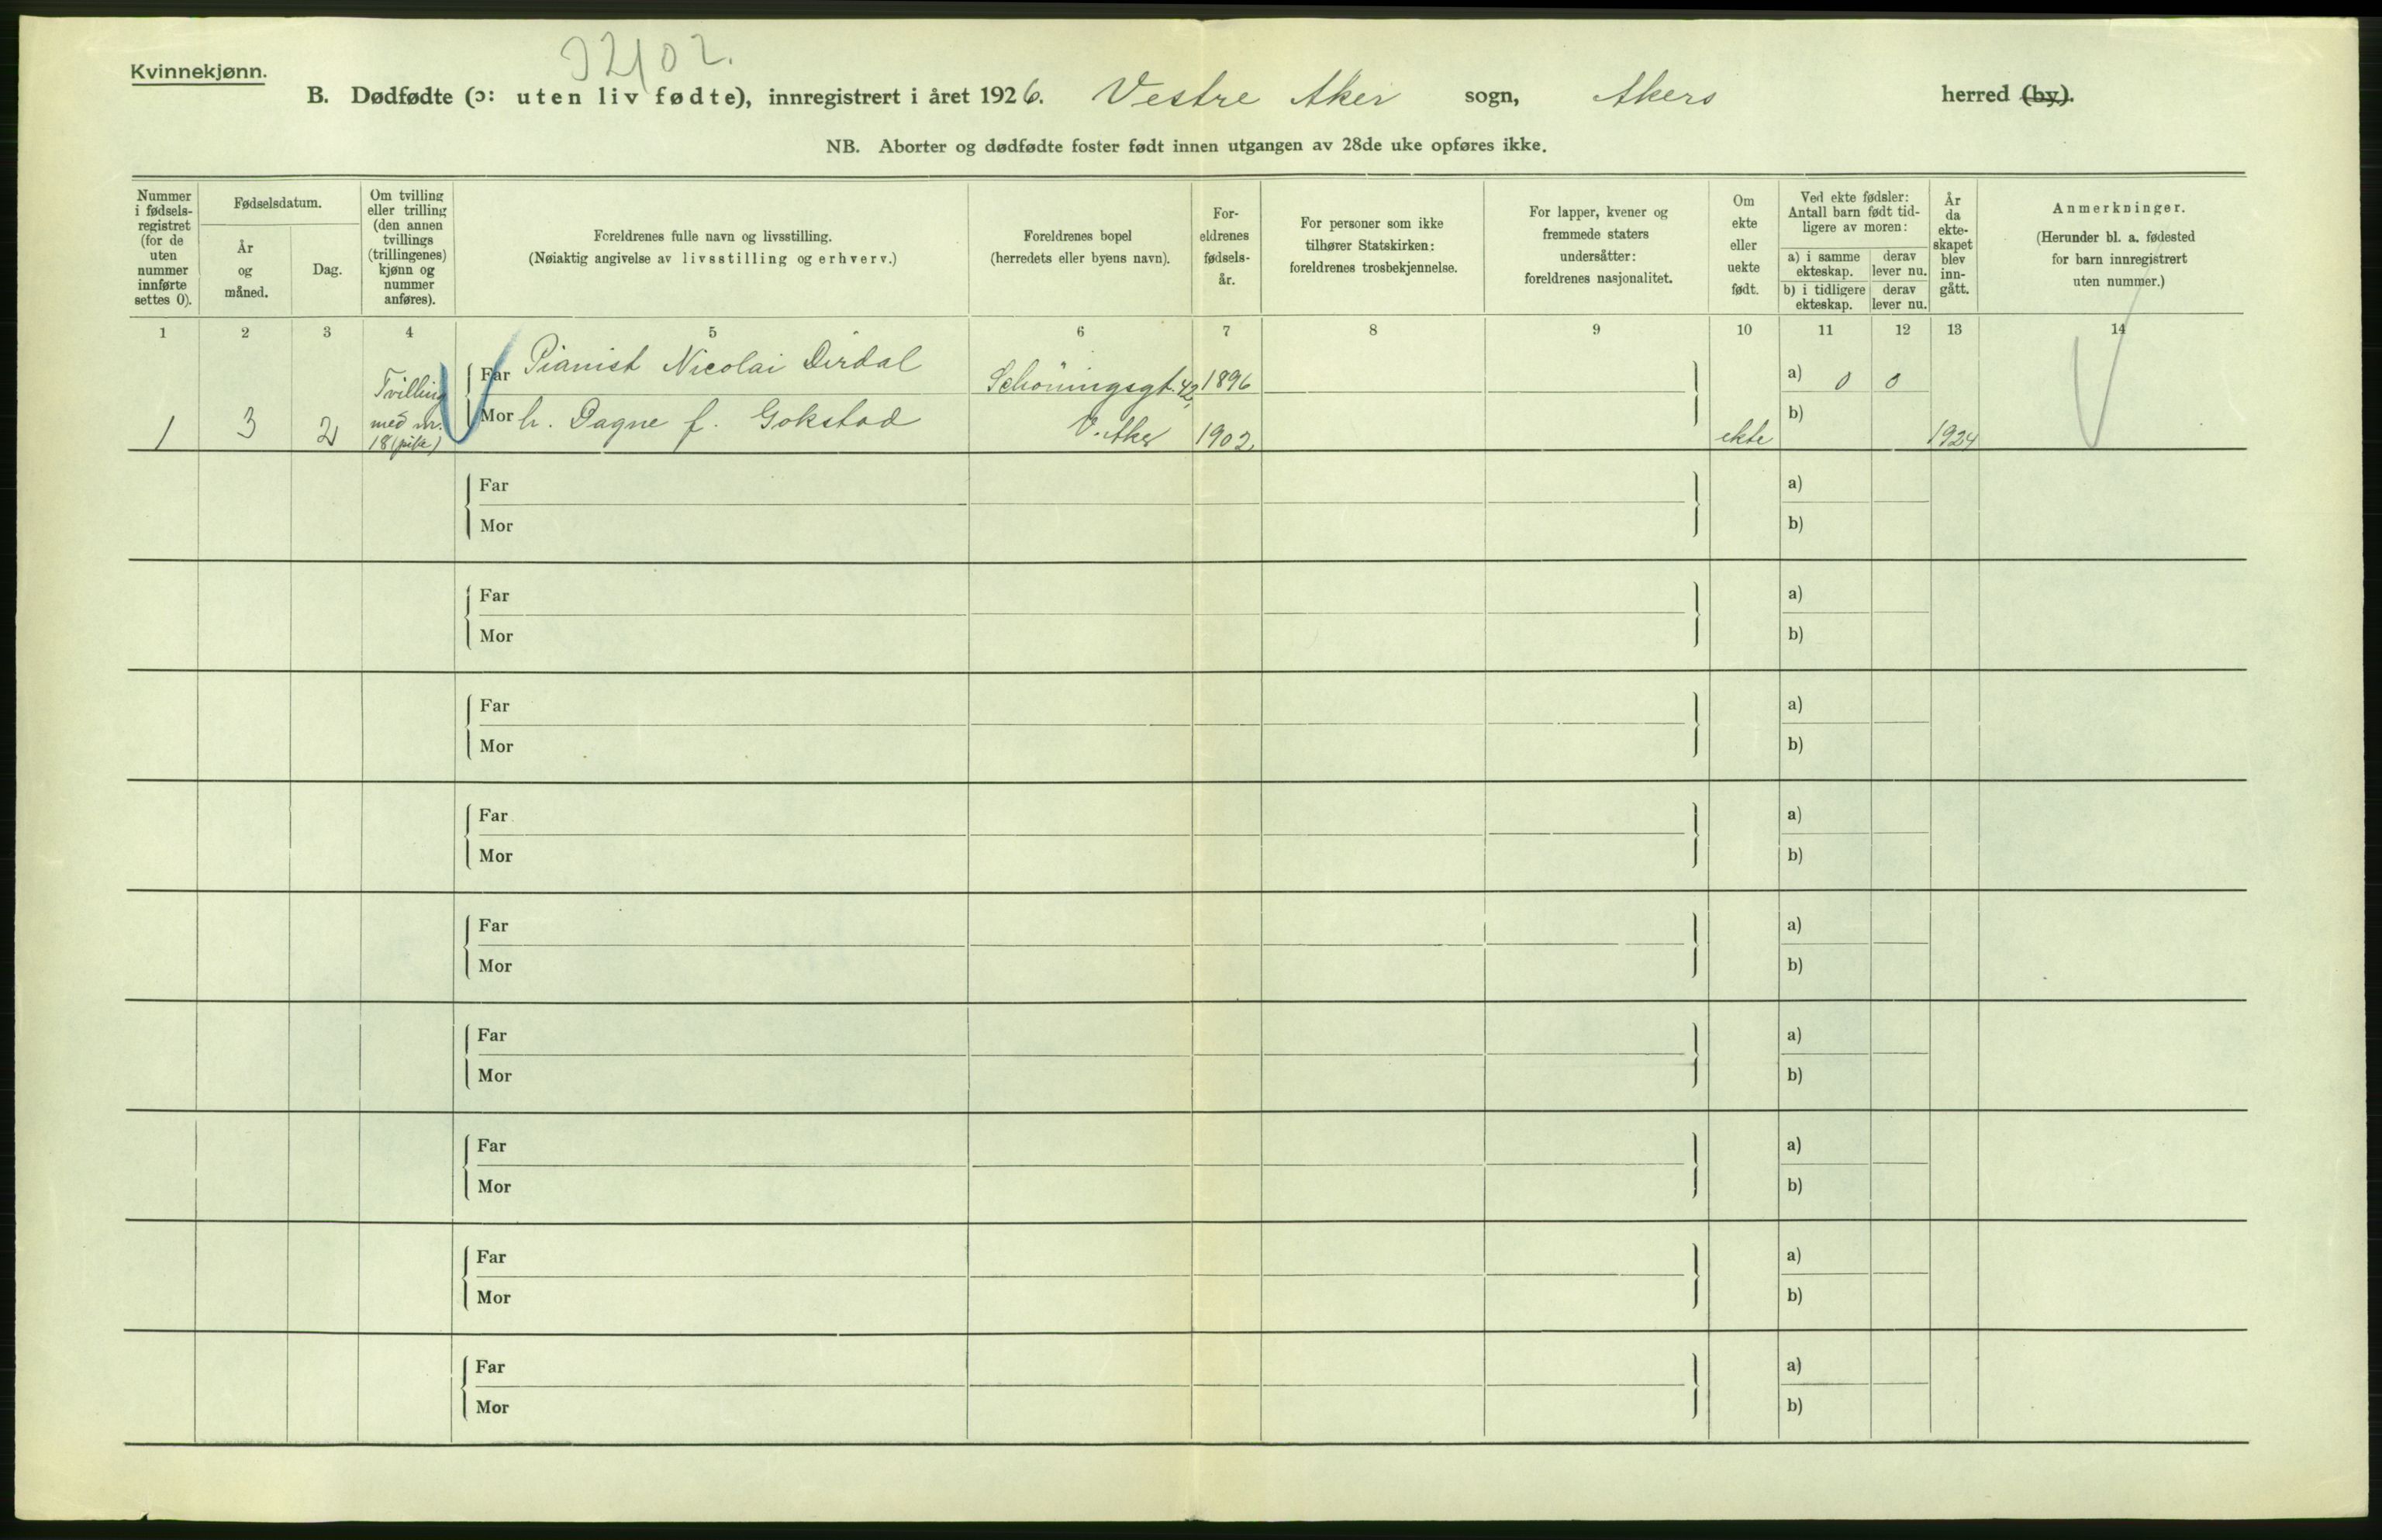 Kvinnekjønn.
B. Dødfødte (ɔ: uten liv fødte), innregistrert i året 1926. Vestre Aker sogn, Akers herred (by).
NB. Aborter og dødfødte foster født innen utgangen av 28de uke opføres ikke.
Nummer
i fødsels-
registret
(for de
uten
nummer
innførte
settes 0).
Fødselsdatum.
År
og
måned.
Dag.
Om tvilling
eller trilling
(den annen
tvillings
(trillingenes)
kjønn og
nummer
anføres).
Foreldrenes fulle navn og livsstilling.
(Nøiaktig angivelse av livsstilling og erhverv.)
Foreldrenes bopel
(herredets eller byens navn).
For-
eldrenes
fødsels-
år.
For personer som ikke
tilhører Statskirken:
foreldrenes trosbekjennelse.
For lapper, kvener og
fremmede staters
undersåtter:
foreldrenes nasjonalitet.
Om
ekte
eller
uekte
født.
Ved ekte fødsler:
Antall barn født tid-
ligere av moren:
a) i samme
ekteskap.
derav
lever nu.
b) i tidligere
ekteskap.
derav
lever nu.
År
da
ekte-
skapet
blev
inn-
gått.
Anmerkninger.
(Herunder bl. a. fødested
for barn innregistrert
uten nummer.)
1 2 3 4 5 6 7 8 9 10 11 12 13 14
1 3 2
Tvilling
med nr.
18 (pike)
Far Pianist Nicolai Dirdal
Mor h. Dagne f. Gokstad
Schöningsgt. 42,
V. Aker
1896
1902
ekte
a) 0 0
b)
1924
Far
Mor
a)
b)
Far
Mor
a)
b)
Far
Mor
a)
b)
Far
Mor
a)
b)
Far
Mor
a)
b)
Far
Mor
a)
b)
Far
Mor
a)
b)
Far
Mor
a)
b)
Far
Mor
a)
b)